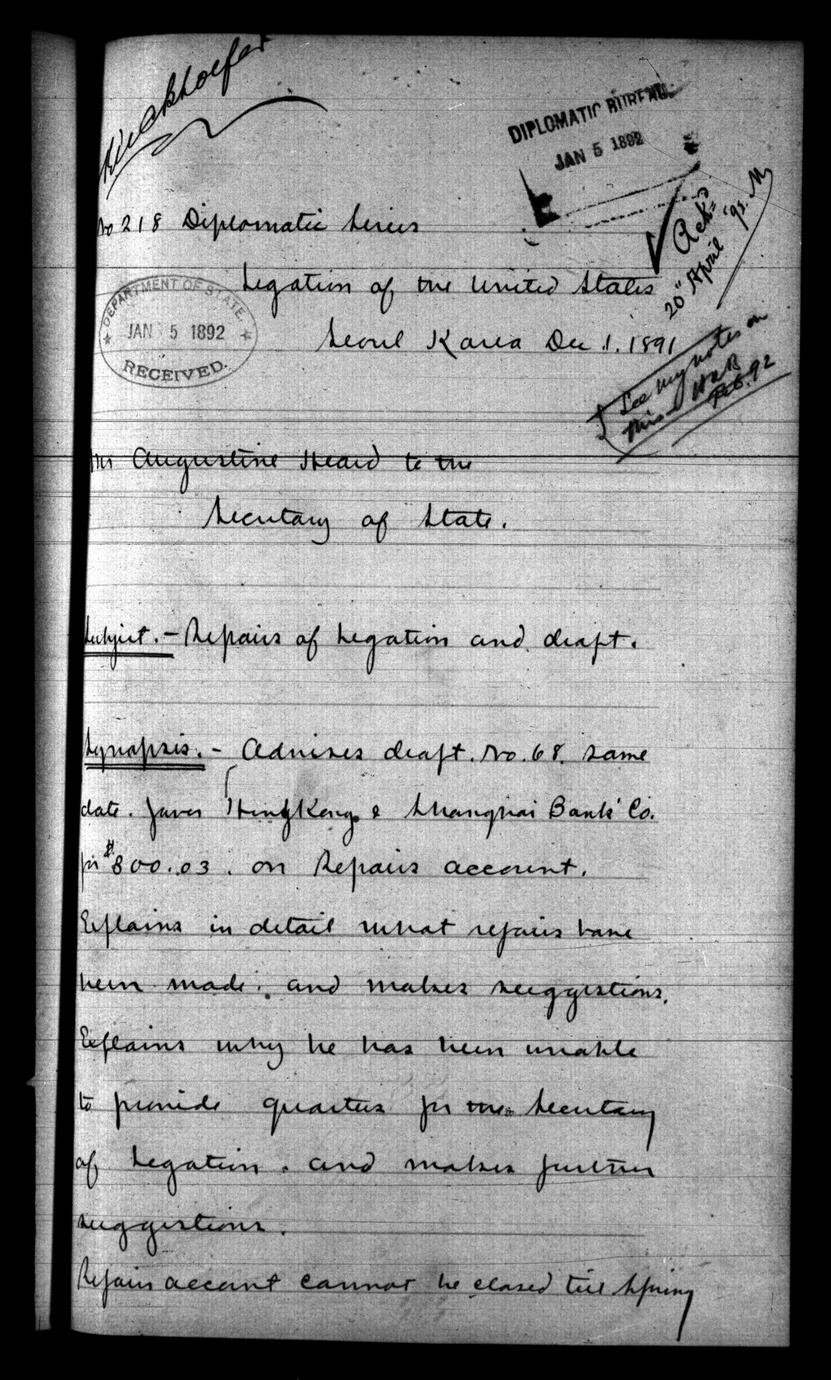 Kieckhoefer
DIPLOMATIC BUREAU
JAN 5 1892
Ack'd
20" April '92. M
No 218 Diplomatic Series
Legation of the United States
DEPARTMENT OF STATE.
JAN 5 1892
RECEIVED.
Seoul Korea Dec 1. 1891
See my notes on
this
Feb. 92
Mr Augustine Heard to the
Secretary of State.
Subject. - Repairs of Legation and draft.
Synopsis. - Advises draft. No. 68. same
date. favor HongKong & Shanghai Bank' Co.
for $800.03. on Repairs account.
Explains in detail what repairs have
been made. and makes suggestions.
Explains why he has been unable
to provide quarters for the Secretary
of Legation. and makes further
suggestions.
Repairs account cannot be closed till Spring